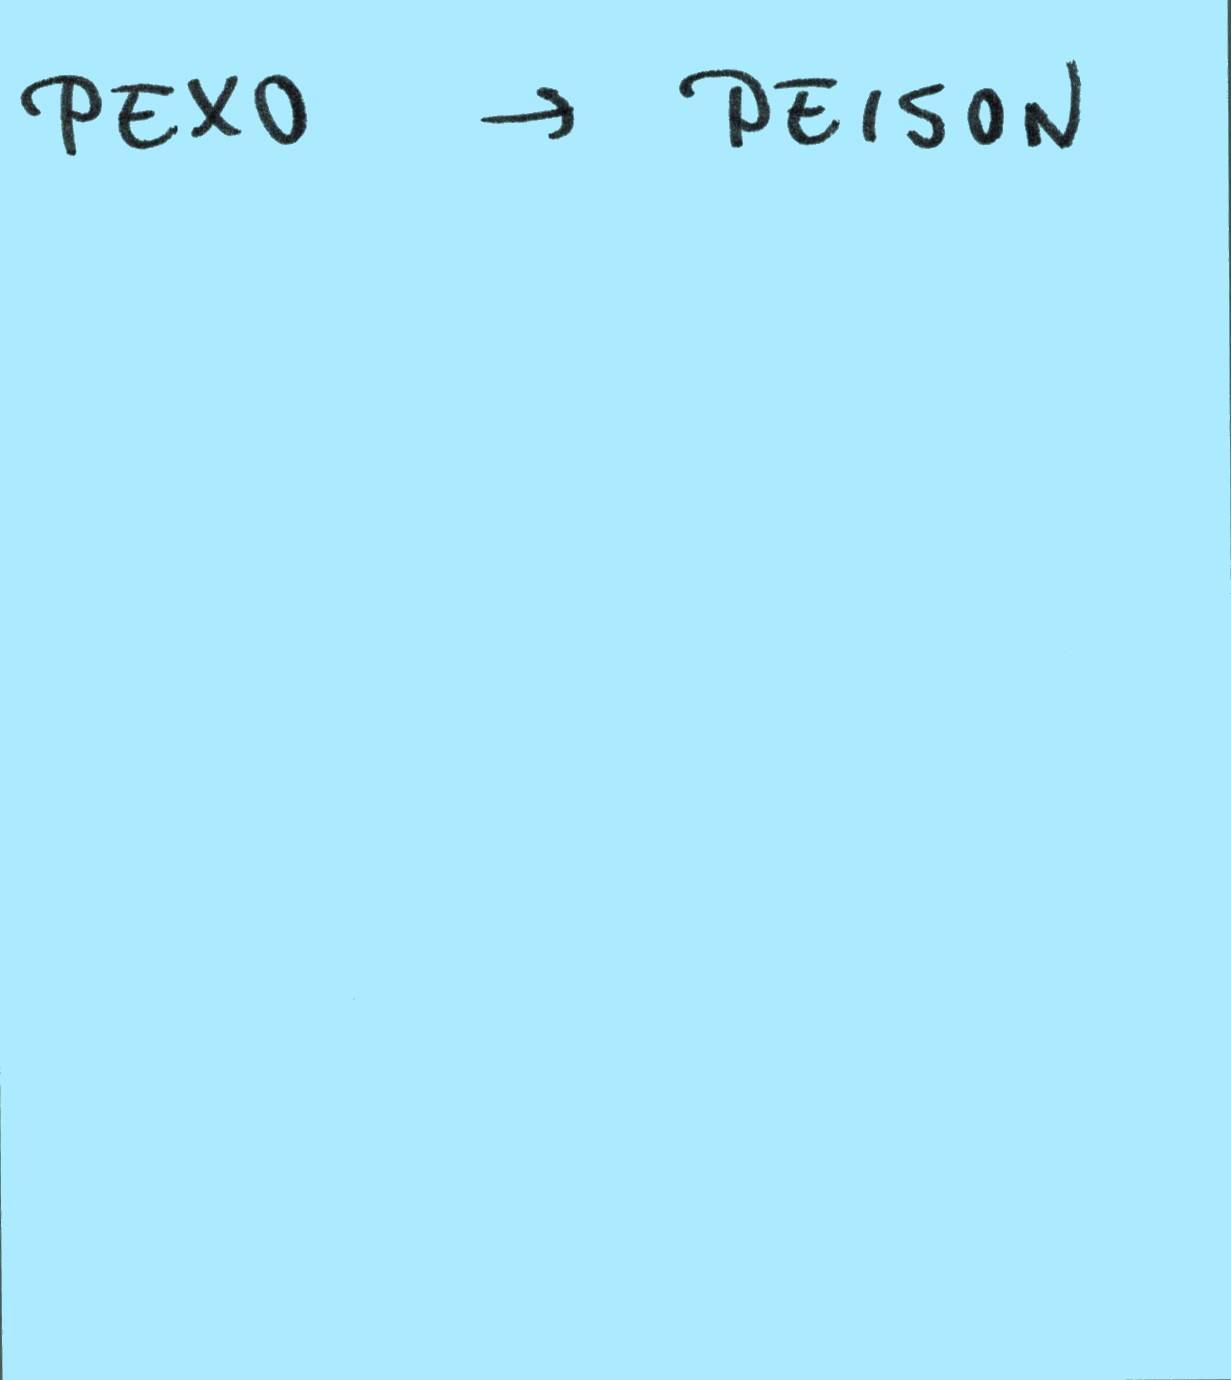 PEXO → PEISON